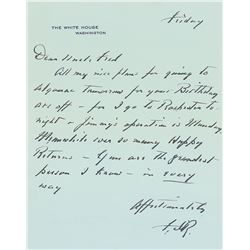 THE WHITE HOUSE
WASHINGTON
Friday
Dear Uncle Fred
All my nice plans for going to
Algonac tomorrow for your Birthday
are off - for I go to Rochester to-
night - Jimmy's operation is Sunday
Meanwhile ever so many Happy
Returns - You are the grandest
person I know - in every
way
Affectionately
FDR